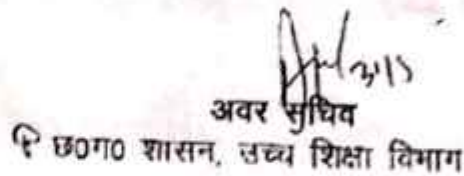 अवर सचिव
छ०ग० शासन, उच्च शिक्षा विभाग